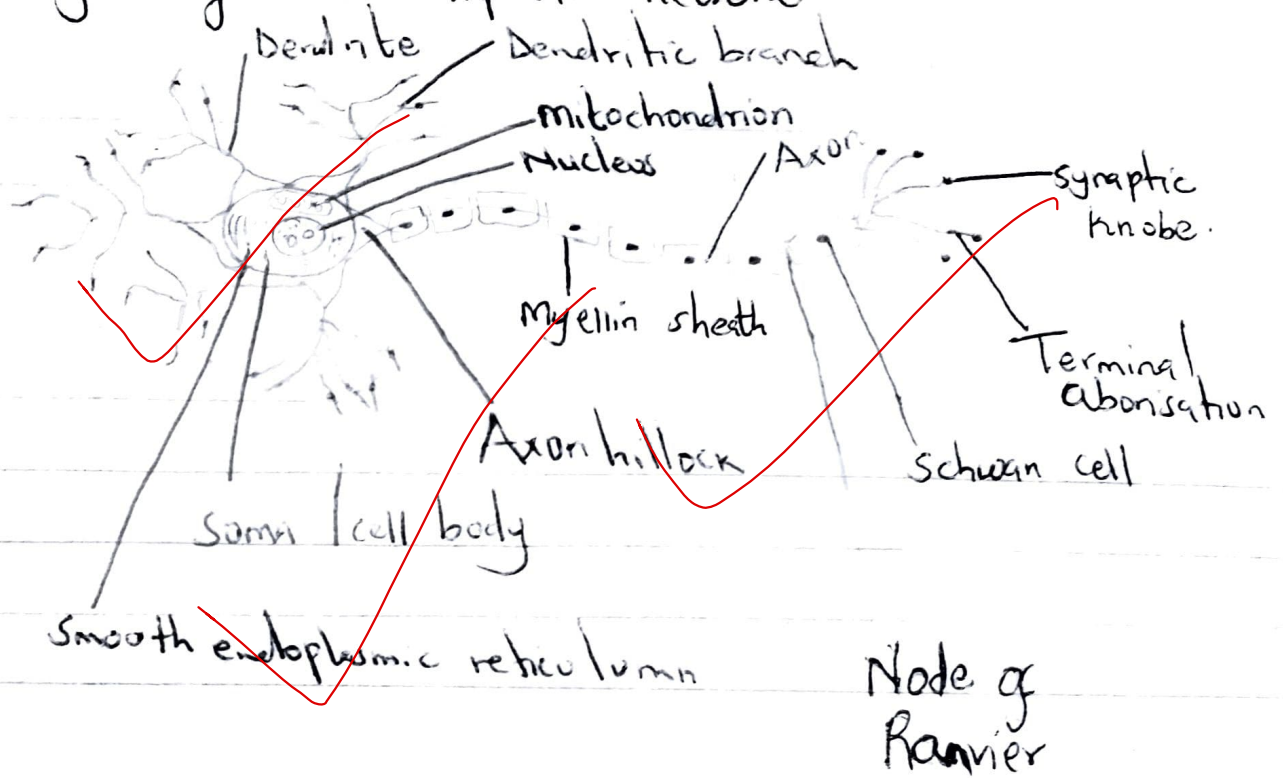 Dendrite
Dendritic branch
Mitochondrion
Nucleus
Axon
Synaptic
knobe.
Myellin sheath
Terminal
aborisation
Axon hillock
Schwan cell
Soma / cell body
Smooth endoplasmic reticulumn
Node of
Ranvier